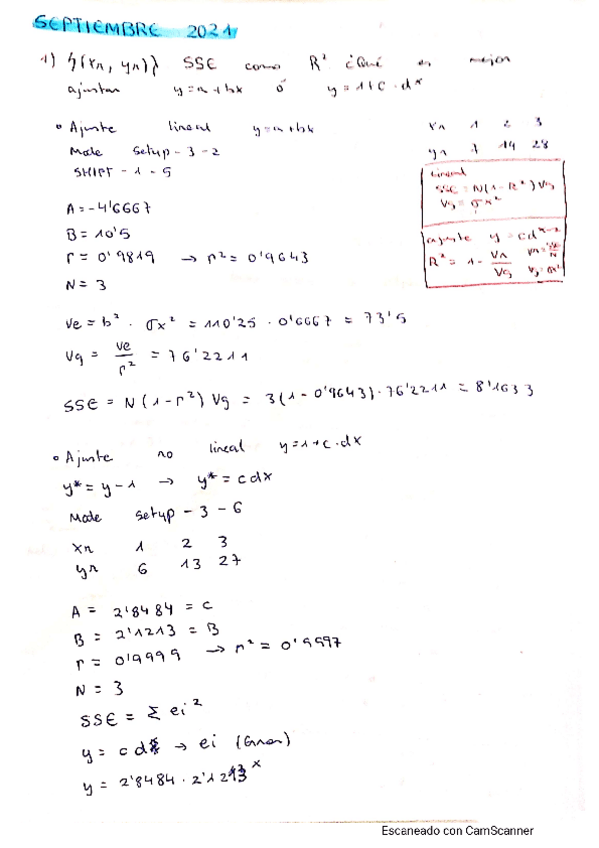 SEPTIEMBRE 2021
1) {(xn, yn)} SSE como R² ¿Qué es mejor
ajustar y=a+bx ó y=1+c·dˣ
• Ajuste lineal y=a+bx
Mode Setup-3-2
SHIFT-1-5
xn 1 2 3
yn 7 14 28
Lineal
SSE = N(1-R²)Vy
Vy = σx²
ajuste y=cdˣ
R² = 1 - Vr/Vy
A=-4'6667
B=10'5
r=0'9819 → r²=0'9643
N=3
Ve=b²·σx² = 110'25·0'6667 = 73'5
Vy = ve/r² = 76'2211
SSE = N(1-r²)Vy = 3(1-0'9643)·76'2211 = 8'1633
• Ajuste no lineal y=1+c·dx
y*=y-1 → y*=cdx
Mode setup-3-6
xn 1 2 3
yn 6 13 27
A = 2'8484 = C
B = 2'1213 = B
r = 0'9999 → r² = 0'9997
N = 3
SSE = Σ ei²
y = c dx → ei (Error)
y = 2'8484·2'1213ˣ
Escaneado con CamScanner